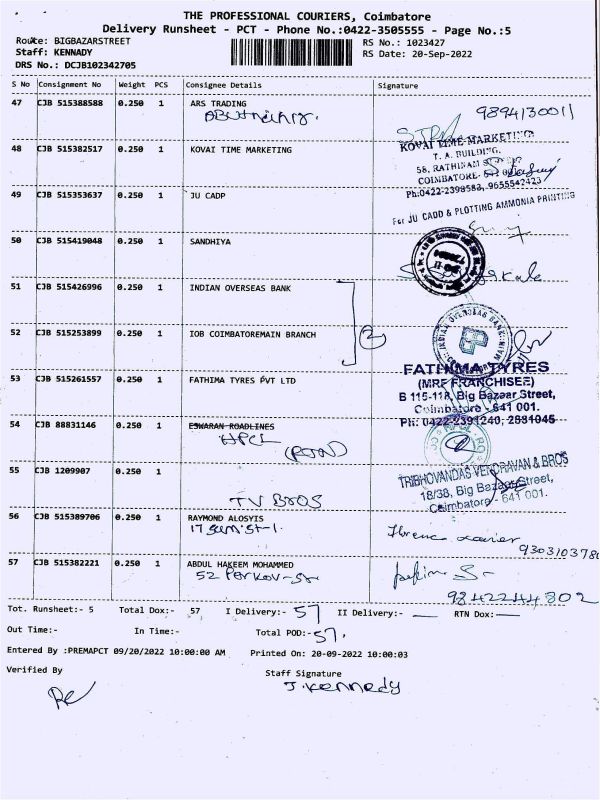 THE PROFESSIONAL COURIERS, Coimbatore
Delivery Runsheet - PCT - Phone No.:0422-3505555 - Page No.:5
Route: BIGBAZARSTREET
RS No.: 1023427
Staff: KENNADY
RS Date: 20-Sep-2022
DRS No.: DCJB102342705
S No Consignment No Weight PCS Consignee Details Signature
47 CJB 515388588 0.250 1 ARS TRADING
9894130011
48 CJB 515382517 0.250 1 KOVAI TIME MARKETING
KOVAI TIME MARKETING
T. A. BUILDING,
58, RATHINAM
COIMBATORE-
Ph:0422-2398583, 9655542423
49 CJB 515353637 0.250 1 JU CADP
For JU CADD & PLOTTING AMMONIA PRINTING
50 CJB 515419048 0.250 1 SANDHIYA
51 CJB 515426996 0.250 1 INDIAN OVERSEAS BANK
INDIAN OVERSEAS BANK
52 CJB 515253899 0.250 1 IOB COIMBATOREMAIN BRANCH
2
53 CJB 515261557 0.250 1 FATHIMA TYRES PVT LTD
FATHIMA TYRES
(MRF FRANCHISEE)
B 115-118, Big Bazaar Street,
Coimbatore - 641 001.
Ph: 0422-2391240, 2981045
54 CJB 88831146 0.250 1 ESWARAN ROADLINES
HPCL
55 CJB 1209907 0.250 1
TV BROS
TRIBHOVANDAS VENDRAVAN & BROS
18/38, Big Bazaar Street,
Coimbatore - 641 001.
56 CJB 515389706 0.250 1 RAYMOND ALOSYIS
57 CJB 515382221 0.250 1 ABDUL HAKEEM MOHAMMED
9842244802
Tot. Runsheet:- 5 Total Dox:- 57 I Delivery:- 57 II Delivery:- — RTN Dox:- —
Out Time:- In Time:- Total POD:- 57.
Entered By :PREMAPCT 09/20/2022 10:00:00 AM Printed On: 20-09-2022 10:00:03
Verified By Staff Signature
J. Kennady